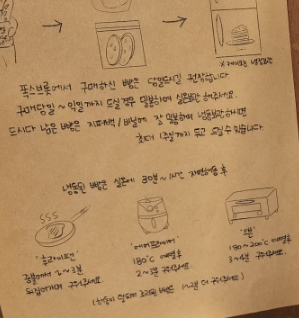 폭스브롯에서 구매하신 빵은 당일드심을 권장합니다
구매당일~익일까지 드실 경우 밀봉하여 실온보관 해주세요.
드시다 남은 빵은 지퍼백/비닐에 잘 밀봉하여 냉동보관하시면
최대 1주일까지 두고 드실 수 있습니다.
냉동된 빵은 실온에 30분~1시간 자연해동 후
'후라이팬'
중불에서 2~3분
뒤집어가며 구워주세요.
'에어프라이어'
180℃ 예열후
2~3분 구워주세요
'오븐'
180~200℃ 예열후
3~4분 구워주세요.